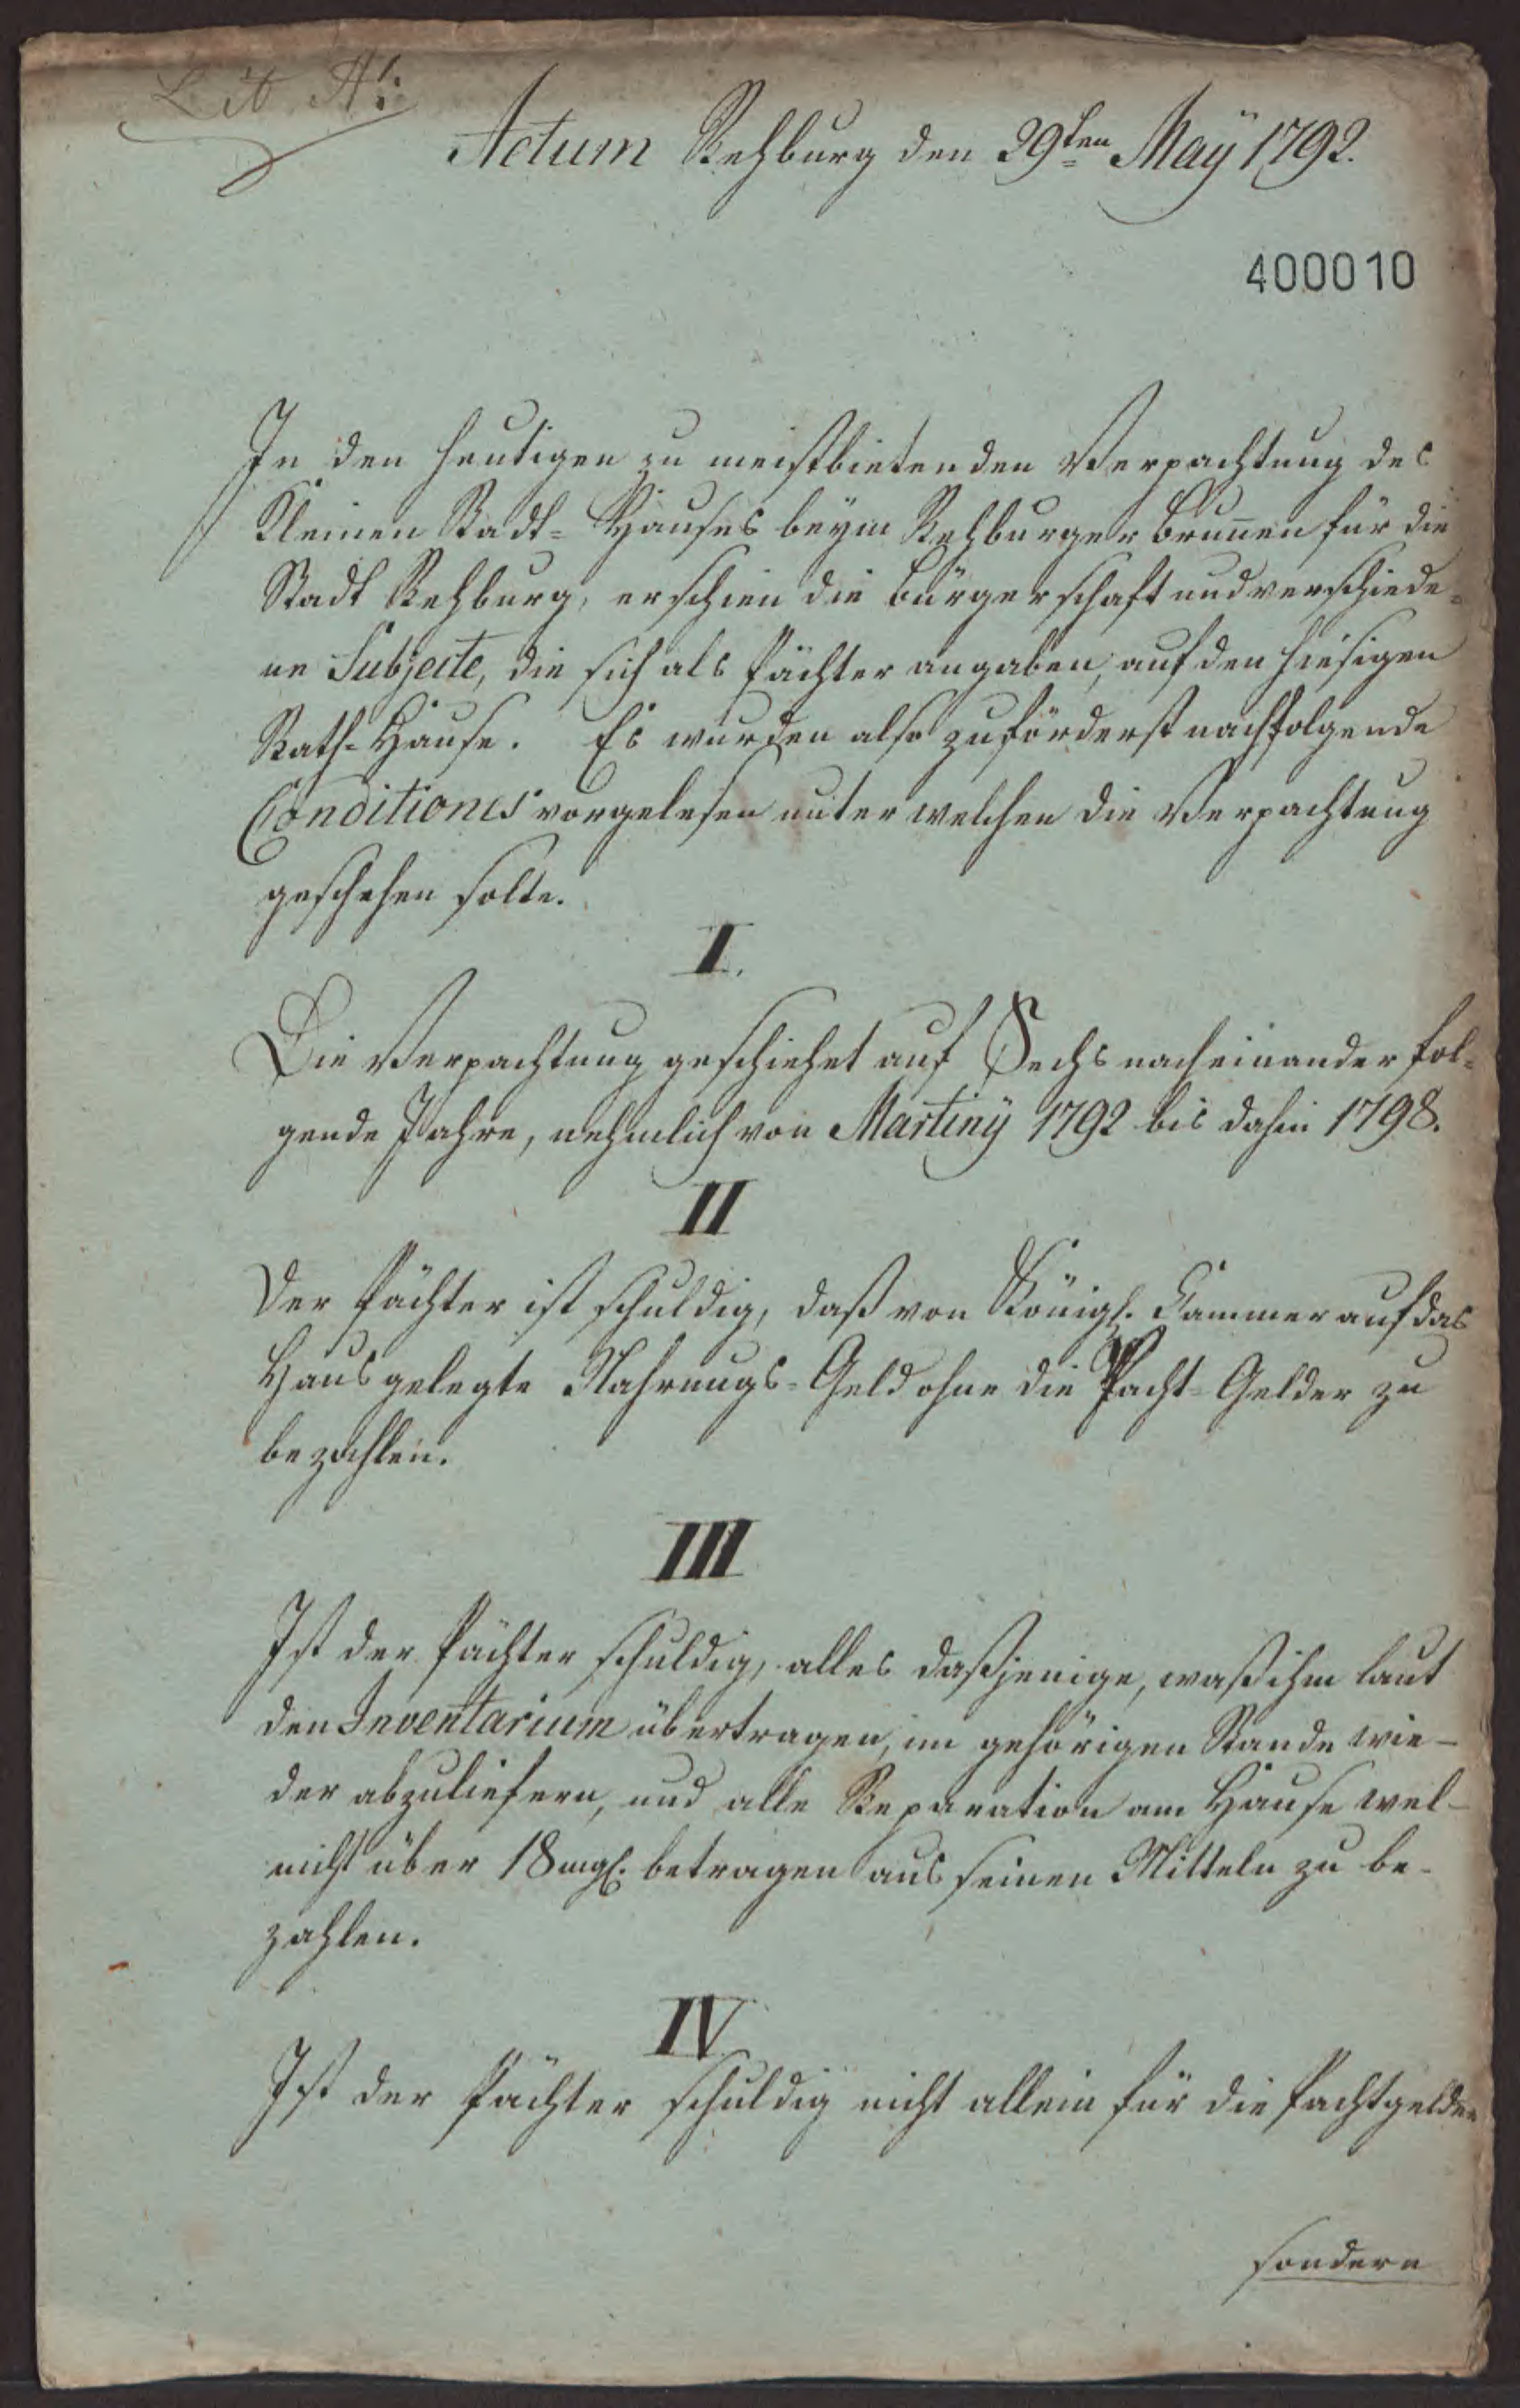 Lit. A:
Actum Rehburg den 29ten May 1792.
400010
In den heutigen zu meistbietenden Verpachtung des
Kleinen Stadt-Hauses beym Rehburger Brunen für die
Stadt Rehburg, erschien die Bürgerschaft und verschiede-
ne Subjecte, die sich als Pächter angaben, auf den hiesigen
Rath-Hause. Es wurden also zuförderst nachfolgende
Conditiones vorgelesen unter welchen die Verpachtung
geschehen solte.
I.
Die Verpachtung geschiehet auf Sechs nach einander fol-
gende Jahre, nehmlich von Martiny 1792 bis dahin 1798.
II
Der Pächter ist schuldig, daß von Königl. Cammer auf das
Haus gelegte Nahrungs-Geld ohne die Pacht-Gelder zu
bezahlen.
III
Ist der Pächter schuldig, alles daßjenige, waß ihm laut
den Inventarium übertragen, im gehörigen Stande wie-
der abzuliefern, und alle Reparation am Hause wel-
nicht über 18 mgl. betragen aus seinen Mitteln zu be-
zahlen.
IV
Ist der Pächter schuldig nicht allein für die Pachtgelder
sondern